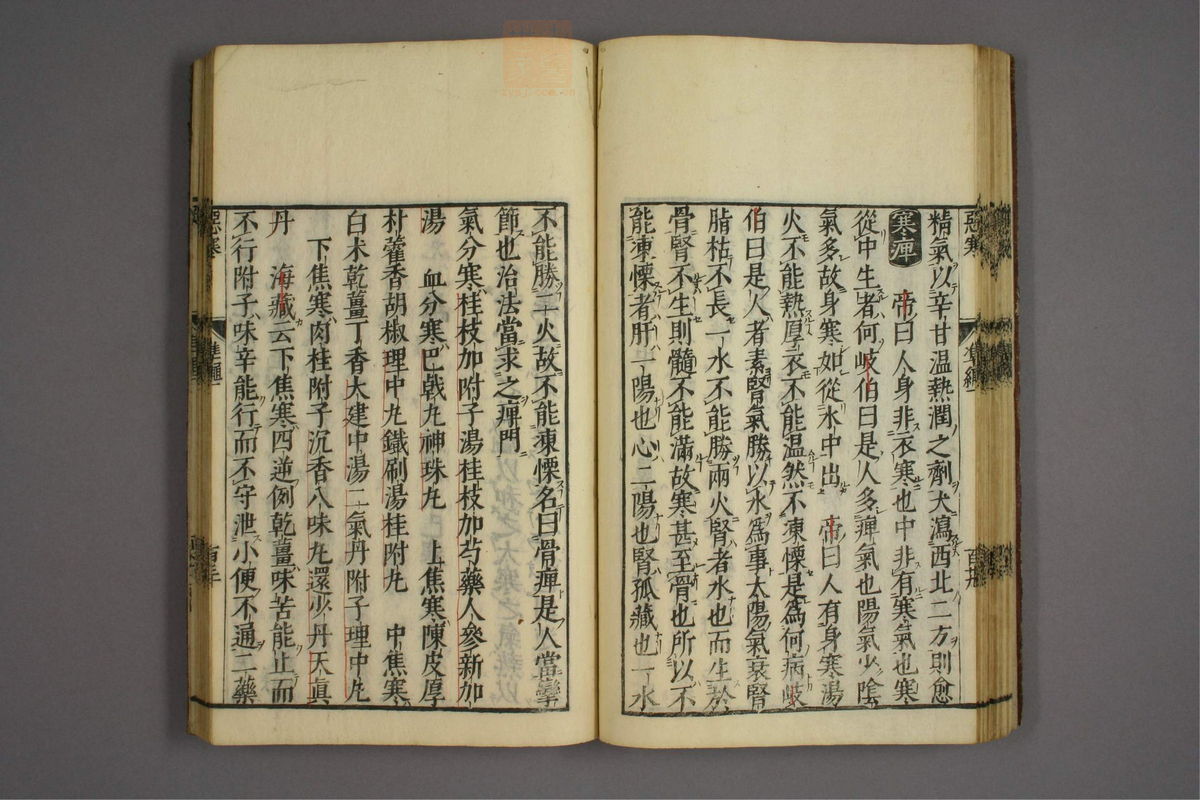 精氣以辛甘温熱潤之劑大瀉西北二方則愈
寒痺 帝曰人身非衣寒也中非有寒氣也寒
從中生者何岐伯曰是人多痺氣也陽氣少陰
氣多故身寒如從水中出 帝曰人有身寒湯
火不能熱厚衣不能温然不凍慄是爲何病岐
伯曰是人者素腎氣勝以水爲事太陽氣衰腎
脂枯不長一水不能勝兩火腎者水也而生於
骨腎不生則髓不能滿故寒甚至骨也所以不
能凍慄者肝一陽也心二陽也腎孤藏也一水
不能勝二火故不能凍慄名曰骨痺是人當攣
節也治法當求之痺門
氣分寒桂枝加附子湯桂枝加芍藥人參新加
湯 血分寒巴戟丸神珠丸 上焦寒陳皮厚
朴藿香胡椒理中丸鐵刷湯桂附丸 中焦寒
白朮乾薑丁香大建中湯二氣丹附子理中丸
下焦寒肉桂附子沉香八味丸還少丹天眞
丹 海藏云下焦寒四逆例乾薑味苦能止而
不行附子味辛能行而不守泄小便不通二藥
惡寒
準繩
惡寒
準繩